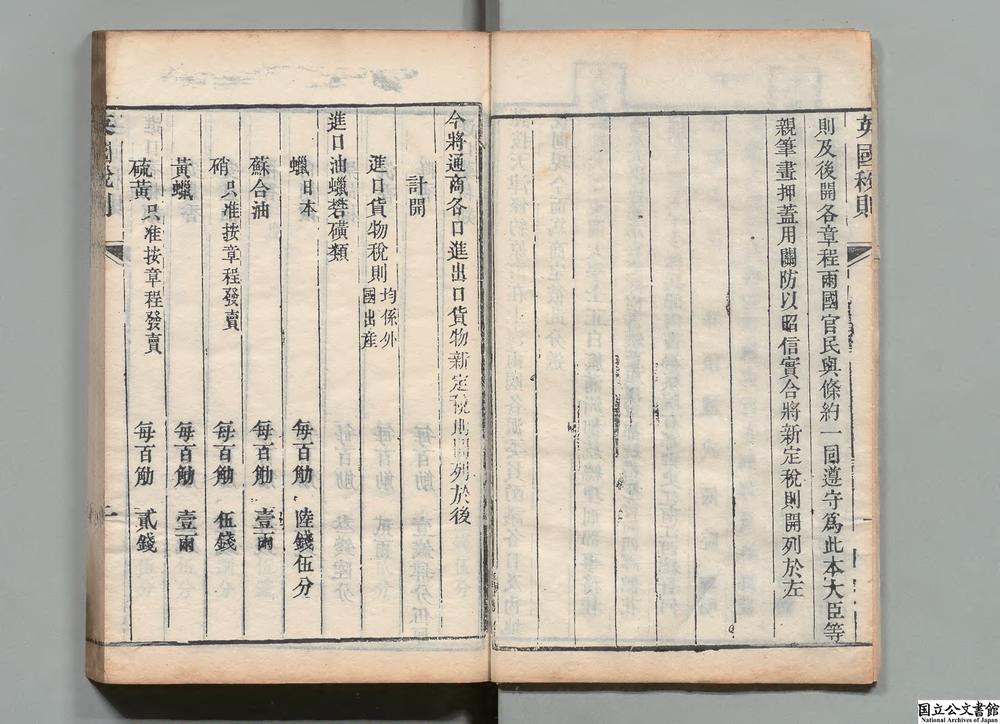 英國稅則
則及後開各章程兩國官民與條約一同遵守為此本大臣等
親筆畫押蓋用關防以昭信實合將新定稅則開列於左
今將通商各口進出口貨物新定稅則開列於後
計開
進口貨物稅則均係外國出產
進口油蠟礬磺類
蠟日本 每百觔 陸錢伍分
蘇合油 每百觔 壹兩
硝只准按章程發賣 每百觔 伍錢
黃蠟 每百觔 壹兩
硫黃只准按章程發賣 每百觔 貳錢
英國稅則
一
国立公文書館
National Archives of Japan